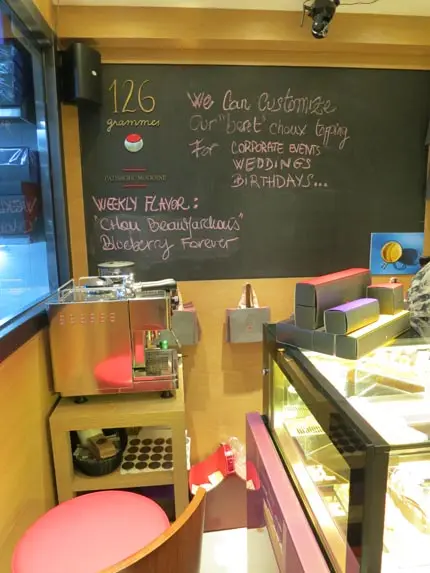 126
grammes
PATISSERIE MODERNE
We Can Customize
Our "beret" choux topping
For CORPORATE EVENTS
WEDDINGS
BIRTHDAYS...
WEEKLY FLAVOR:
Blueberry Forever